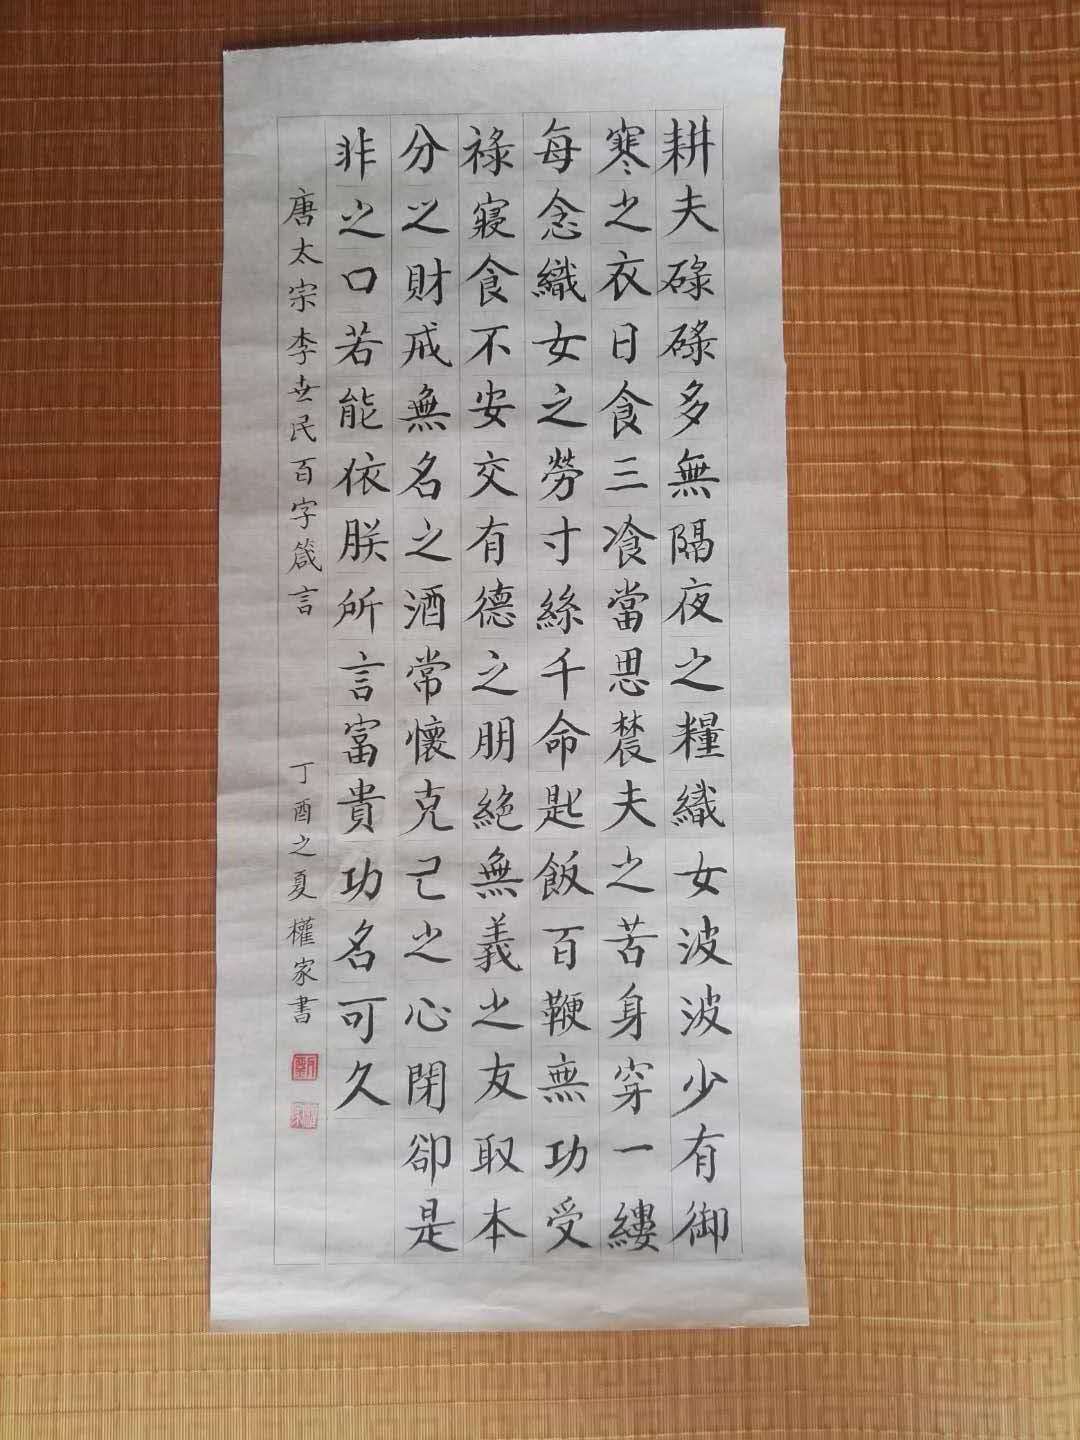 耕夫碌碌多無隔夜之糧織女波波少有御
寒之衣日食三飡當思農夫之苦身穿一縷
每念織女之勞寸絲千命匙飯百鞭無功受
祿寢食不安交有德之朋絕無義之友取本
分之財戒無名之酒常懷克己之心閉卻是
非之口若能依朕所言富貴功名可久
唐太宗李世民百字箴言 丁酉之夏權家書